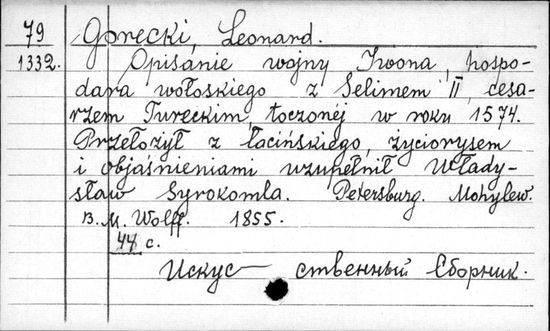 79 Gorecki, Leonard.
1332. Opisanie wojny Iwona, hospo-
dara wołoskiego z Selimem II, cesa-
rzem Tureckim, toczonéj w roku 1574.
Przełożył z łacińskiego, życiorysem
i objaśnieniami uzupełnił Włady-
sław Syrokomla. Petersburg. Mohylew.
B. M. Wolff. 1855.
44 с.
Искус— ственный Сборник.